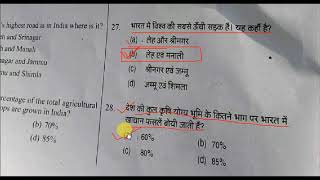 's highest road is in India where is it?
h and Srinagar
h and Manali
nagar and Jammu
nu and Shimla
rcentage of the total agricultural
ops are grown in India?
(b) 70%
(d) 85%
27. भारत में विश्व की सबसे ऊँची सड़क है। यह कहाँ है?
(a) लेह और श्रीनगर
(b) लेह एवं मनाली
(c) श्रीनगर एवं जम्मू
(d) जम्मू एवं शिमला
28. देश की कुल कृषि योग्य भूमि के कितने भाग पर भारत में
खाद्यान फसलें बोयी जाती हैं?
60% (b) 70%
(c) 80% (d) 85%